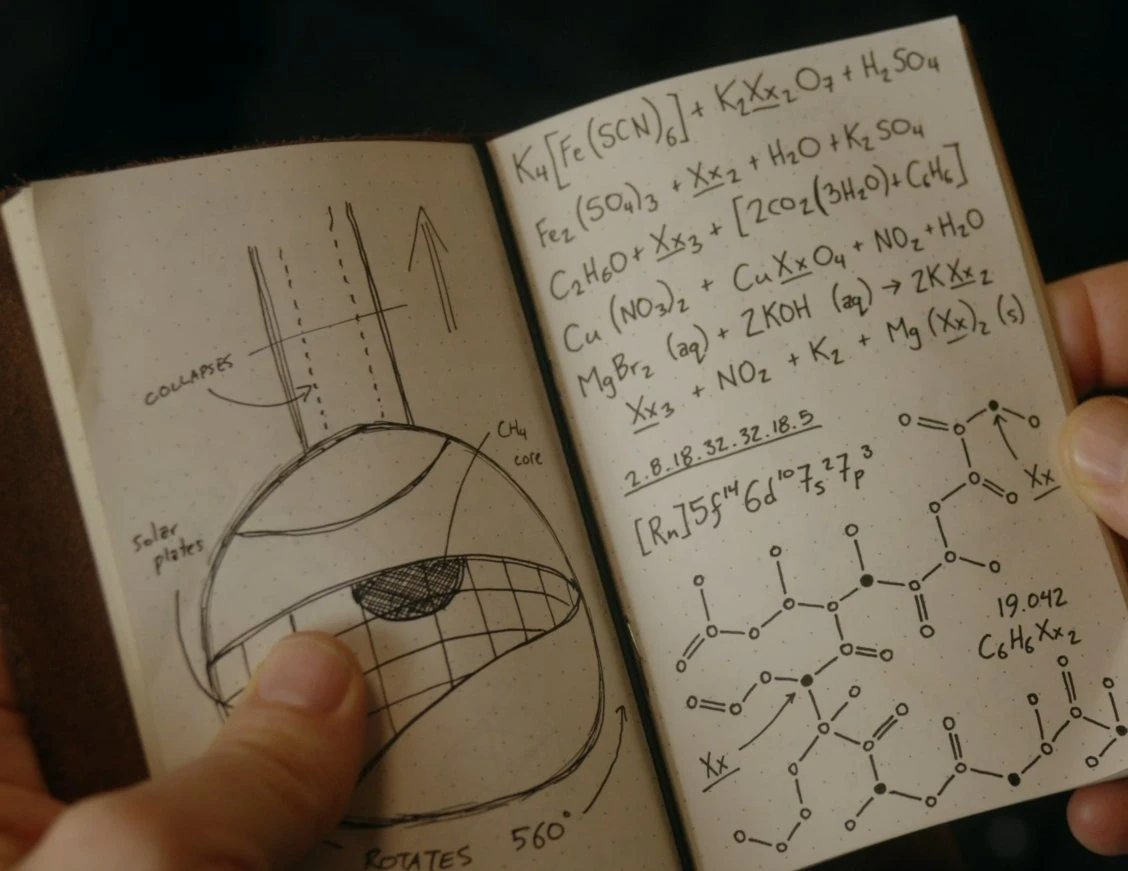 COLLAPSES
CH₄
core
Solar
plates
ROTATES 560°
K₄[Fe(SCN)₆] + K₂Xx₂O₇ + H₂SO₄
Fe₂(SO₄)₃ + Xx₂ + H₂O + K₂SO₄
C₂H₆O + Xx₃ + [2CO₂(3H₂O) + C₆H₆]
Cu(NO₃)₂ + CuXxO₄ + NO₂ + H₂O
MgBr₂ (aq) + 2KOH (aq) → 2KXx₂
Xx₃ + NO₂ + K₂ + Mg(Xx)₂ (s)
2.8.18.32.32.18.5
[Rn]5f¹⁴6d¹⁰7s²7p³
Xx
19.042
C₆H₆Xx₂
Xx